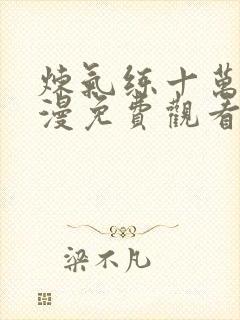 煉氣练十萬
漫免費觀看
梁不凡